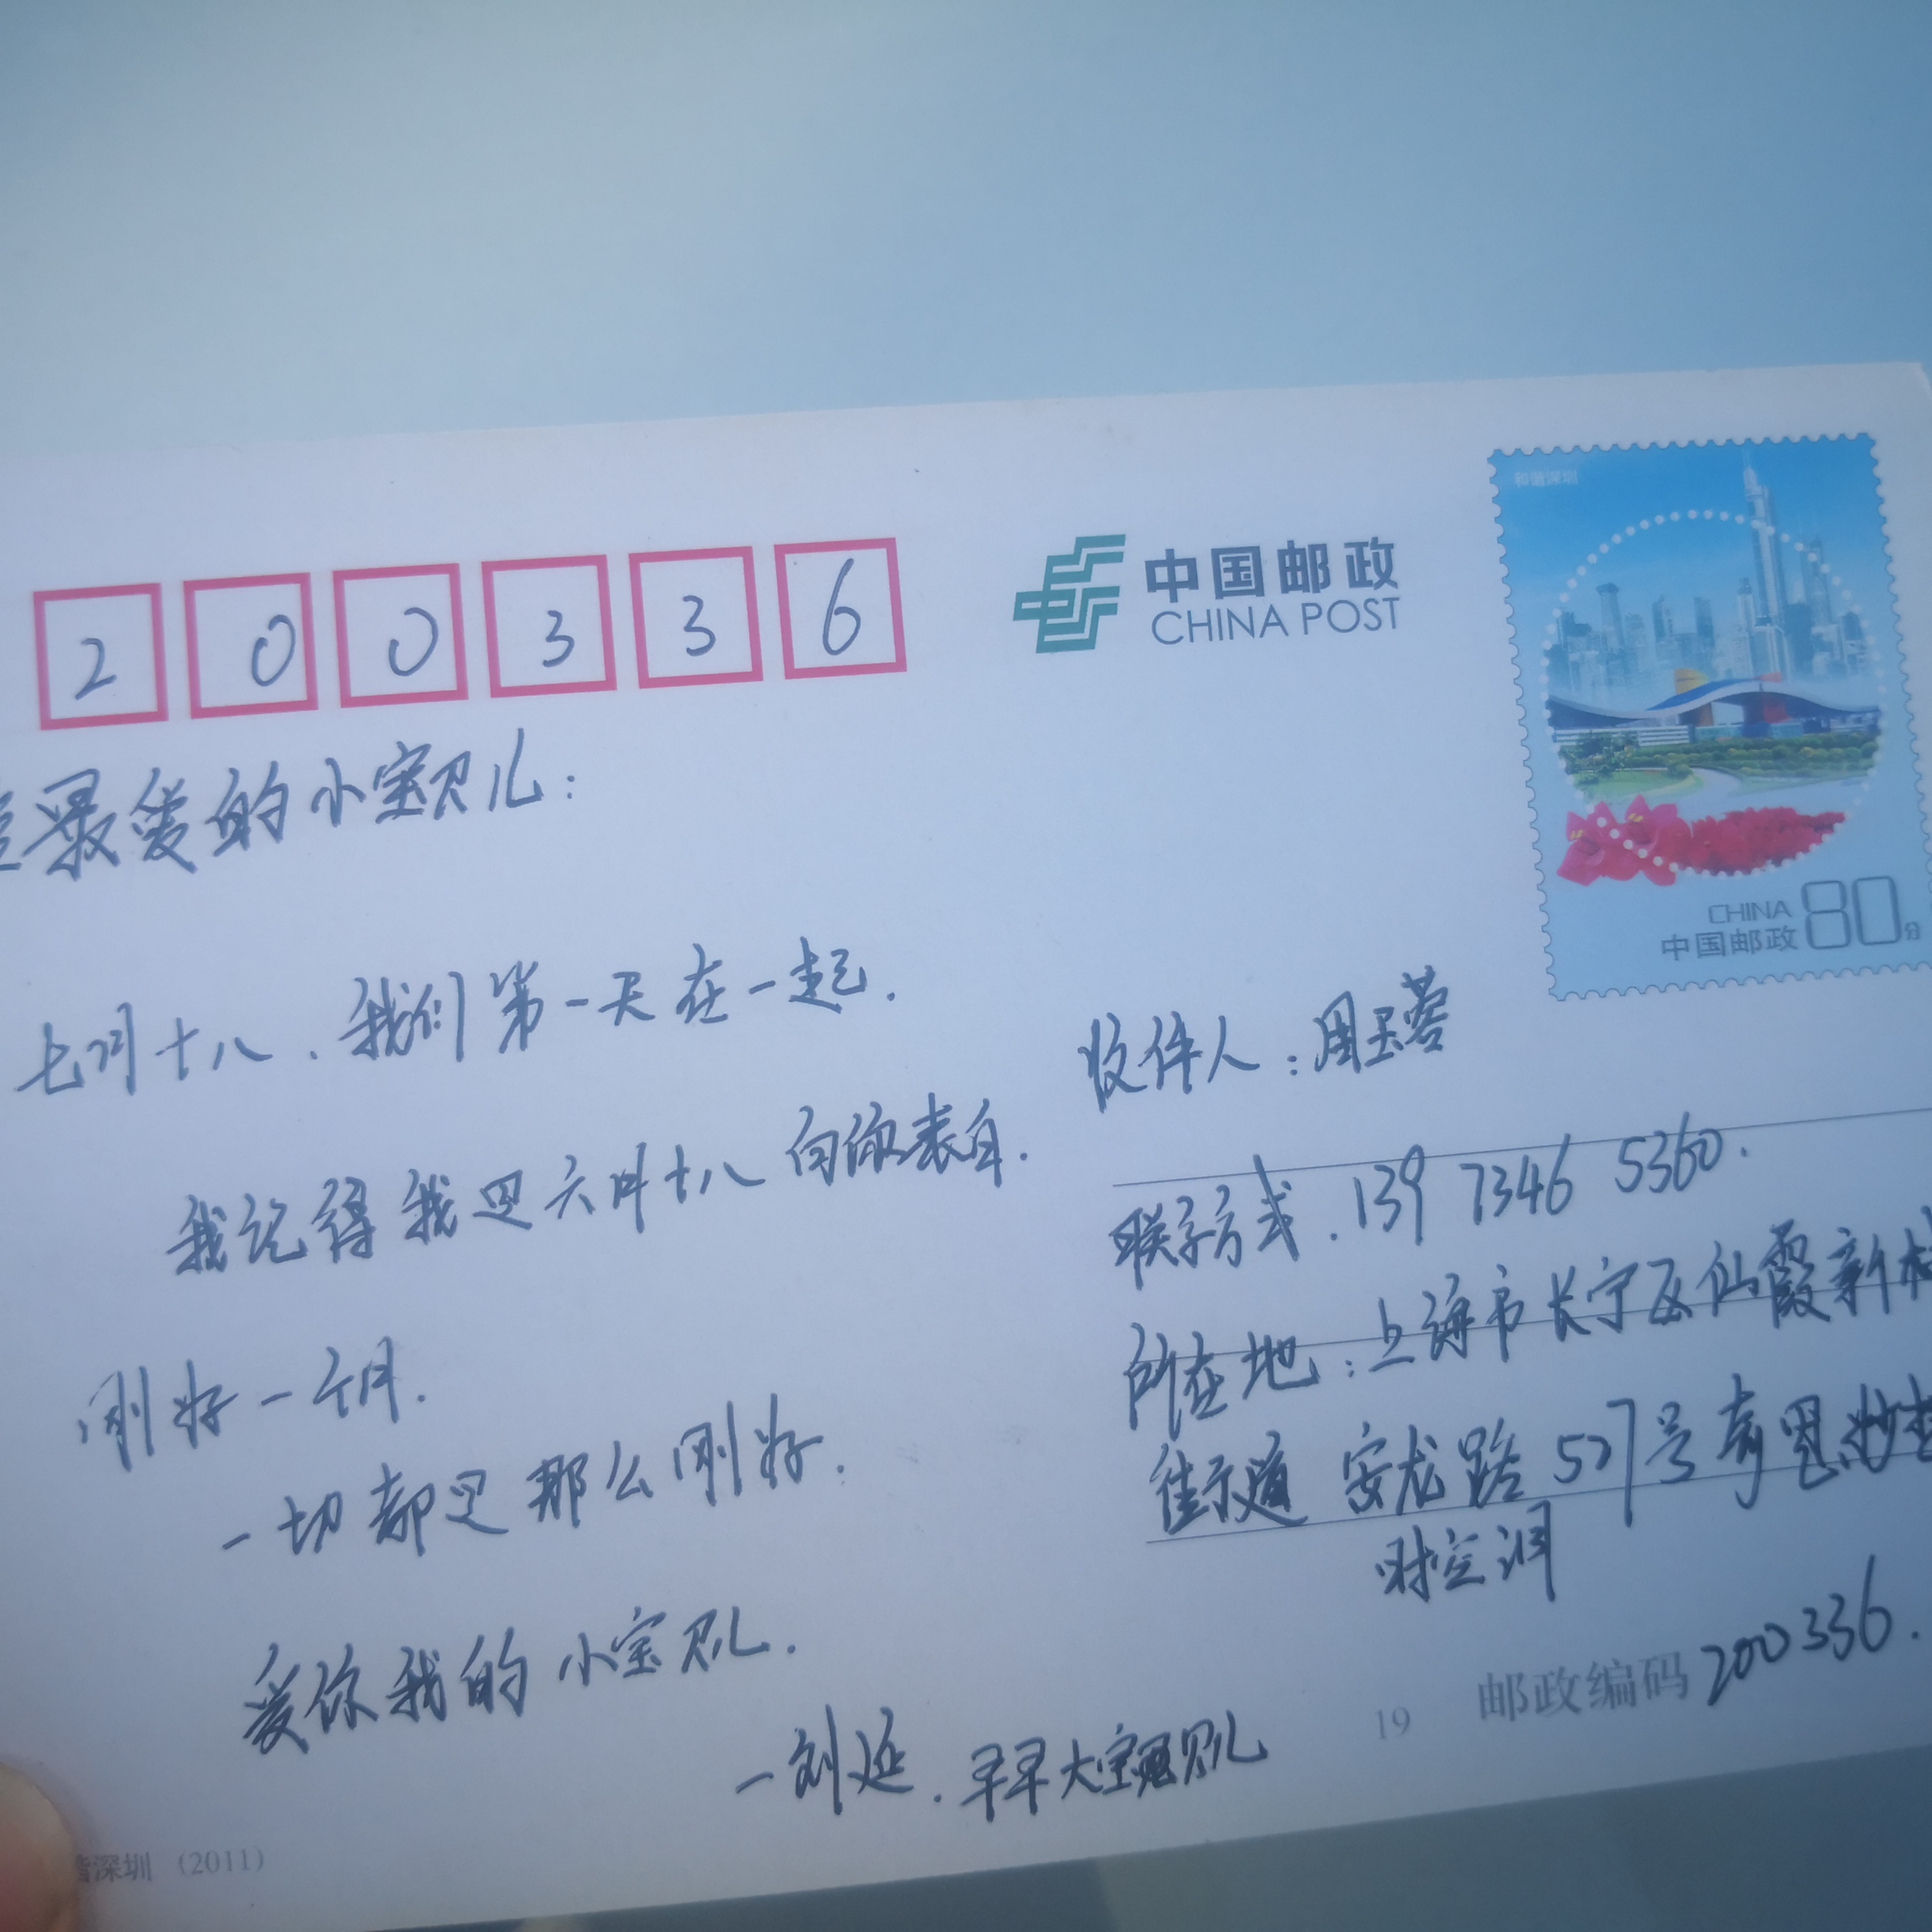 200336
中国邮政
CHINA POST
和谐深圳
CHINA
中国邮政 80分
最爱的小宝贝儿：
七月十八.我们第一天在一起.
我记得我是六月十八向你表白.
刚好一个月.
一切都是那么刚好.
爱你我的小宝贝儿.
一刘延.早早大宝贝儿
收件人：周玉蓉
联系方式.139 7346 5360.
所在地：上海市长宁区仙霞新村
街道 安龙路 527号奇思妙想
时空洞
19
邮政编码 200336.
谐深圳 (2011)